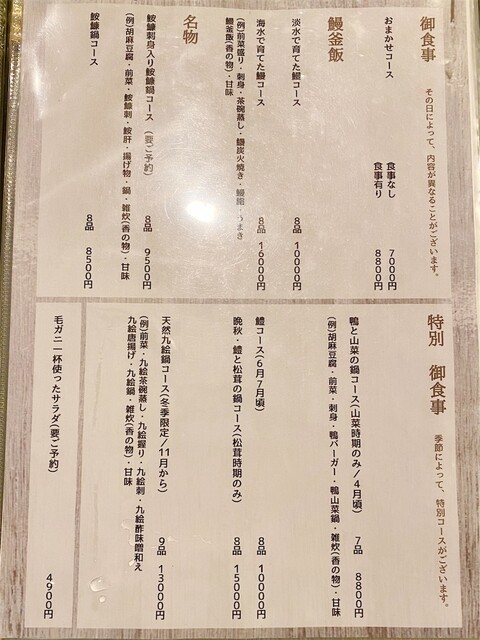 御食事 その日によって、内容が異なることがございます。
おまかせコース 食事なし 7000円
食事有り 8800円
鰻釜飯
淡水で育てた鰻コース 8品 10000円
海水で育てた鰻コース 8品 16000円
(例)前菜盛り・刺身・茶碗蒸し・鰻炭火焼き・鰻鍋・うまき
鰻釜飯(香の物)・甘味
名物
鮟鱇刺身入り鮟鱇鍋コース (要ご予約) 8品 9500円
(例)胡麻豆腐・前菜・鮟鱇刺・鮟肝・揚げ物・鍋・雑炊(香の物)・甘味
鮟鱇鍋コース 8品 8500円
特別 御食事 季節によって、特別コースがございます。
鴨と山菜の鍋コース(山菜時期のみ/4月頃) 7品 8800円
(例)胡麻豆腐・前菜・刺身・鴨バーガー・鴨山菜鍋・雑炊(香の物)・甘味
鱧コース(6月7月頃) 8品 10000円
晩秋・鱧と松茸の鍋コース(松茸時期のみ) 8品 15000円
天然九絵鍋コース(冬季限定/11月から) 9品 13000円
(例)前菜・九絵茶碗蒸し・九絵握り・九絵刺・九絵酢味噌和え
九絵唐揚げ・九絵鍋・雑炊(香の物)・甘味
毛ガニ一杯使ったサラダ(要ご予約) 4900円